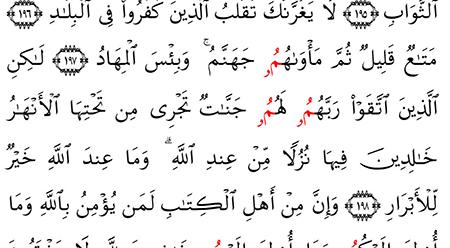 ٱلثَّوَابِ ﴿١٩٥﴾ لَا يَغُرَّنَّكَ تَقَلُّبُ ٱلَّذِينَ كَفَرُوا۟ فِى ٱلْبِلَـٰدِ ﴿١٩٦﴾
مَتَـٰعٌ قَلِيلٌ ثُمَّ مَأْوَىٰهُمُۥ جَهَنَّمُ ۚ وَبِئْسَ ٱلْمِهَادُ ﴿١٩٧﴾ لَـٰكِنِ
ٱلَّذِينَ ٱتَّقَوْا۟ رَبَّهُمُۥ لَهُمُۥ جَنَّـٰتٌ تَجْرِى مِن تَحْتِهَا ٱلْأَنْهَـٰرُ
خَـٰلِدِينَ فِيهَا نُزُلًا مِّنْ عِندِ ٱللَّهِ ۗ وَمَا عِندَ ٱللَّهِ خَيْرٌ
لِّلْأَبْرَارِ ﴿١٩٨﴾ وَإِنَّ مِنْ أَهْلِ ٱلْكِتَـٰبِ لَمَن يُؤْمِنُ بِٱللَّهِ وَمَا